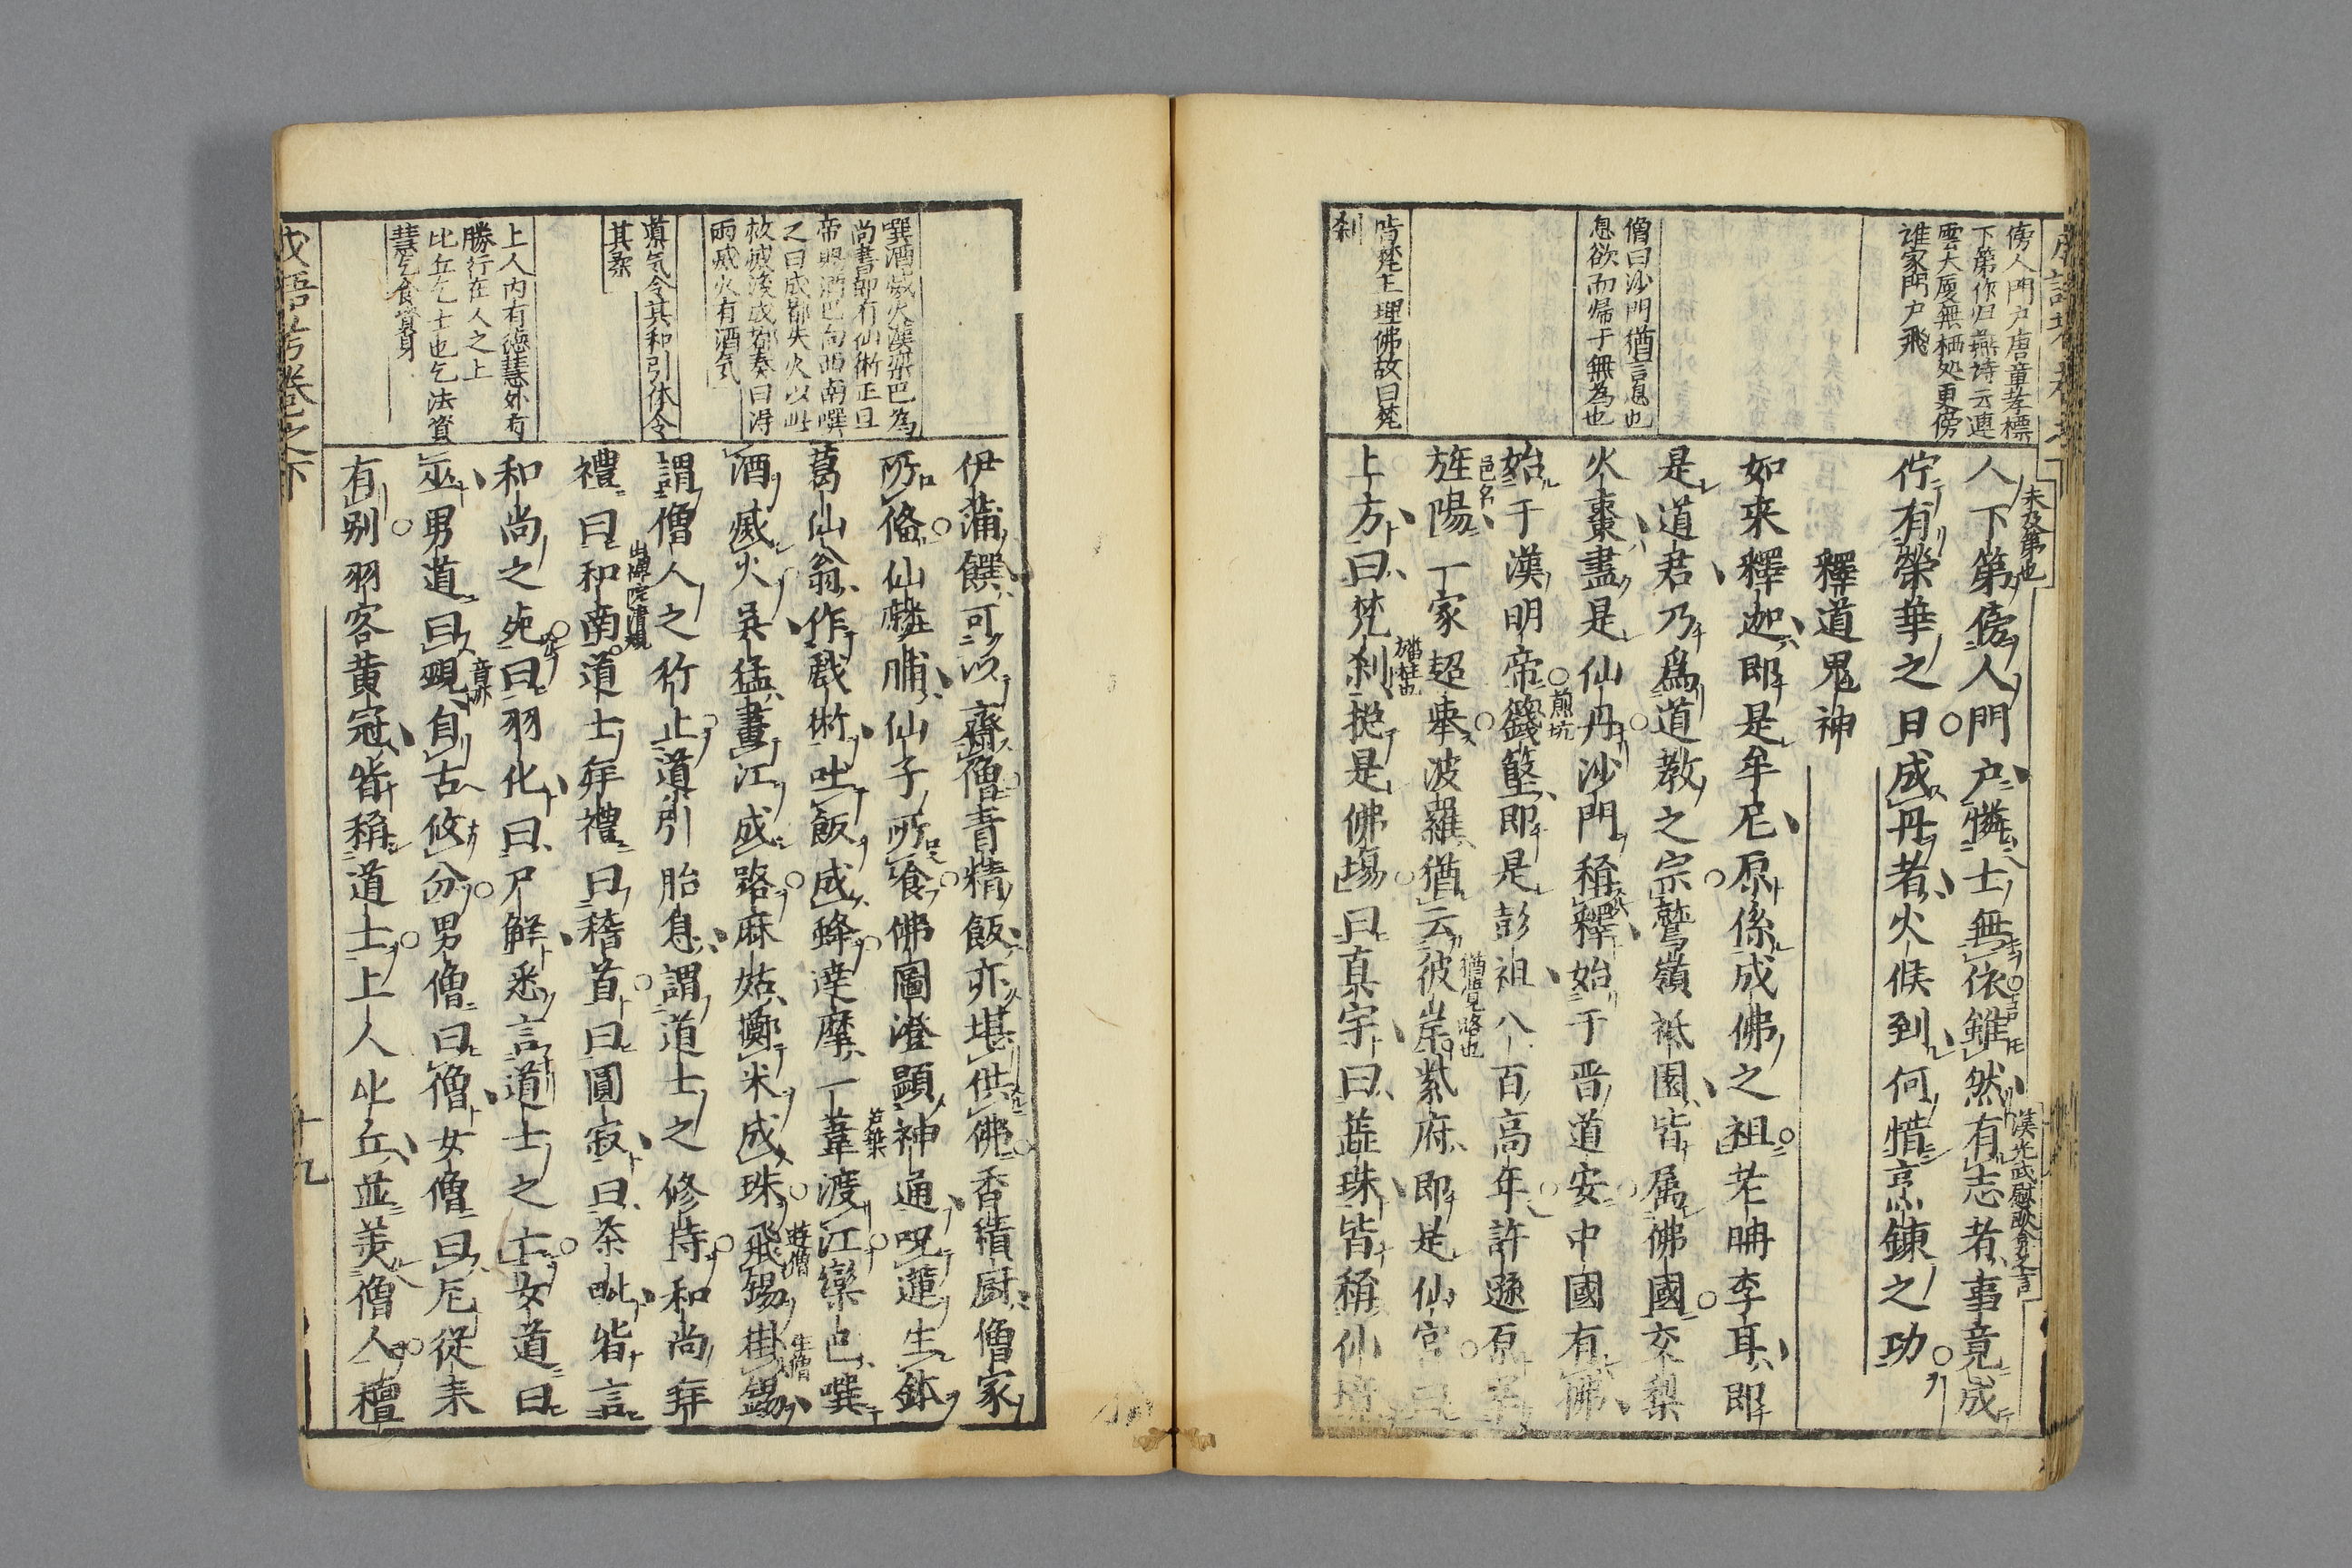 傍人門戸唐章孝標
下第作归燕诗云連
雲大厦無栖处更傍
谁家門户飛
僧曰沙門猶言息也
息欲而帰于無為也
皆梵王理佛故曰梵
刹
人下第傍人門戸憐士無依雖然有志者事竟成
未及第也
漢光武慰耿弇之言
佇有榮華之日成丹者火候到何惜烹錬之功
釋道鬼神
如来釋迦即是牟尼原係成佛之祖老聃李耳即
是道君乃爲道教之宗鷲嶺祗園皆属佛國交梨
火棗盡是仙丹沙門稱釋始于晋道安中國有佛
始于漢明帝籛鏗即是彭祖八百高年許遜原宰
煎坑
旌陽一家超舉波羅猶云彼岸紫府即是仙宮曰
邑名
猶覺路也
上方曰梵刹捴是佛場曰真宇曰蕋珠皆稱仙境
旛柱也
噀酒滅火漢欒巴為
尚書郎有仙術正旦
帝賜酒巴向西南噀
之曰成都失火以此
救滅後成都奏曰得
雨滅火有酒気
導気令其和引体令
其柔
上人内有德慧外有
勝行在人之上
比丘乞士也乞法資
慧乞食資身
伊蒲饌可以齋僧青精飯亦堪供佛香積厨僧家
所俻仙麟脯仙子所飡佛圖澄顕神通呪蓮生鉢
葛仙翁作戱術吐飯成蜂達摩一葦渡江欒巴噀
芦葉
酒滅火吳猛畫江成路麻姑擲米成珠飛錫掛錫
遊僧
住僧
謂僧人之行止導引胎息謂道士之修持和尚拜
禮曰和南道士拜禮曰稽首曰圓寂曰荼毗皆言
出禪院清規
和尚之死曰羽化曰尸解悉言道士之亡女道曰
巫男道曰覡自古攸分男僧曰僧女僧曰尼従来
音亦
有别羽客黄冠皆稱道士上人比丘並美僧人檀
成語考卷之下
十九